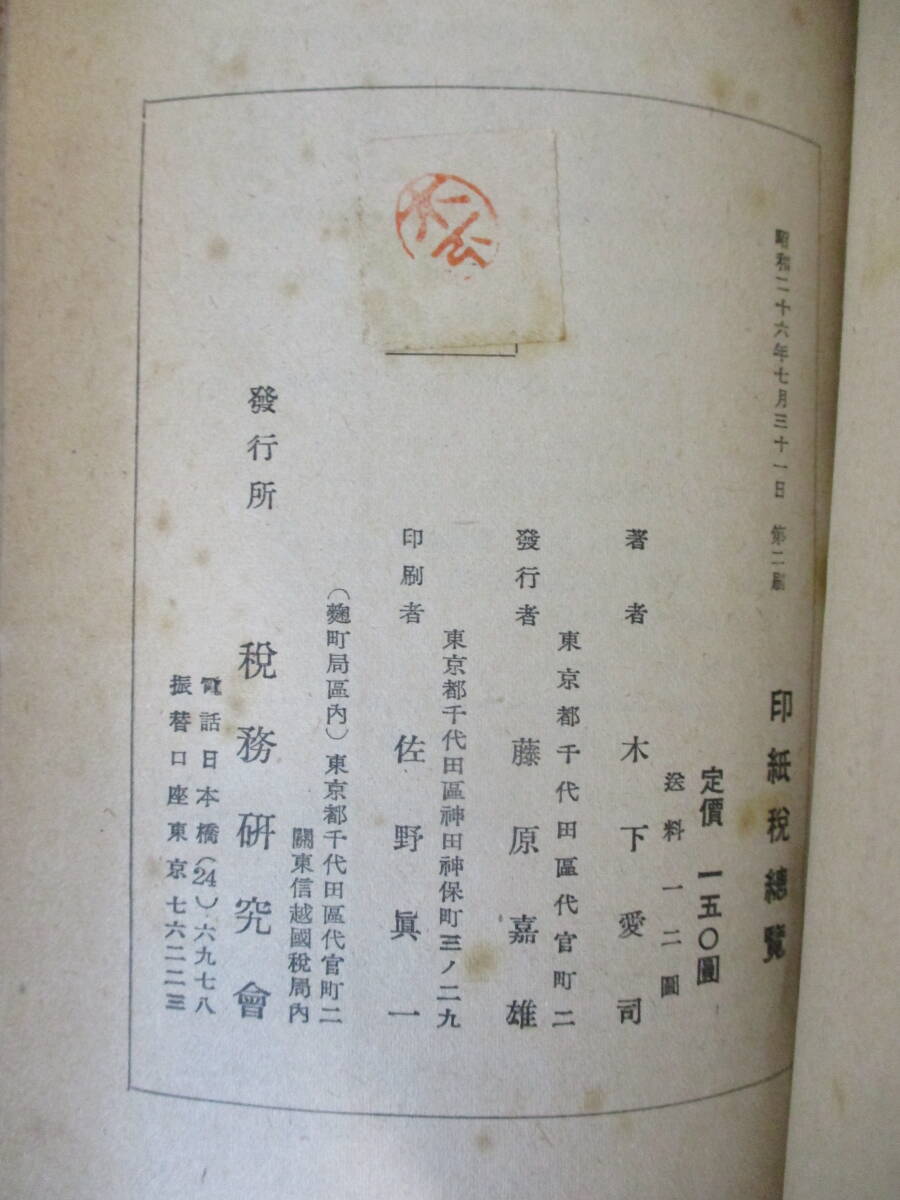 昭和二十六年七月三十一日 第二刷
印紙稅總覽
定價 一五〇圓
送料 一二圓
著者 木下愛司
東京都千代田區代官町二
發行者 藤原嘉雄
東京都千代田區神田神保町三ノ二九
印刷者 佐野眞一
（麴町局區內）東京都千代田區代官町二
關東信越國稅局內
發行所 稅務硏究會
電話日本橋（24）六九七八
振替口座東京七六二二三